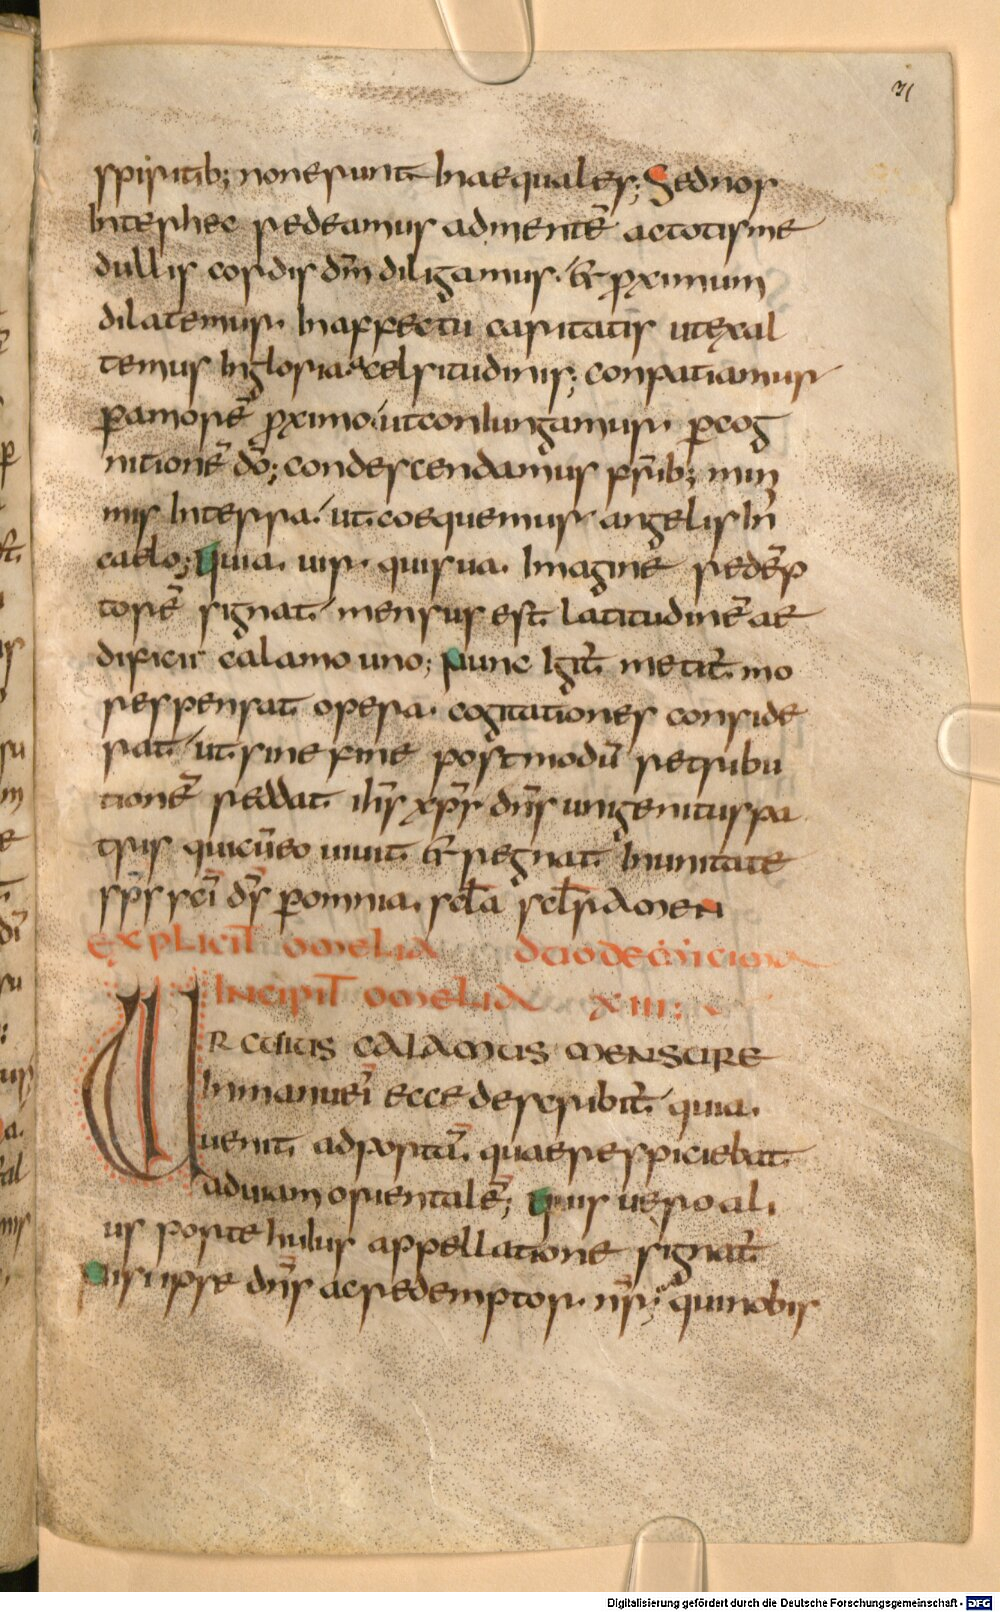 31
spiritib; non erunt Inaequales; Sed nos
Inter hec redeamus ad mentē ac totis me
dullis cordis dm̄ diligamus. & proximum
dilatemur. In affectu caritatis ut exal
temur In gloria excelsitudinis; conpatiamur
p amorē proximo ut coniungamur. p cog
nitionē dō; condescendamus frīb; mini
mis In terra. ut coequemur angelis In
caelo; quia. uir. qui sua. Imaginē redēp
torē signat mensus est latitudinē ae
dificii calamo uno; Nunc Igit̄ metit̄ mo
res pensat opera. cogitationes conside
rat ut sine fine postmodū retribu
tionē reddat ih̄s xp̄s dn̄s unigenitus pa
tris qui cū eo uiuit & regnat In unitate
sp̄s sc̄i ds̄ p omnia. scl̄a scl̄r̄ amen
explicit omelia duodecim
Incipit omelia xiii;
UR cuius calamus mensure
In manu ei ecce describit̄ quia.
uenit ad portā quae respiciebat
ad uiam orientalē; quis uero ali
us porte huius appellatione signat̄
nisi ipse dn̄s ac redemptor. nr̄; qui nobis
Digitalisierung gefördert durch die Deutsche Forschungsgemeinschaft - DFG